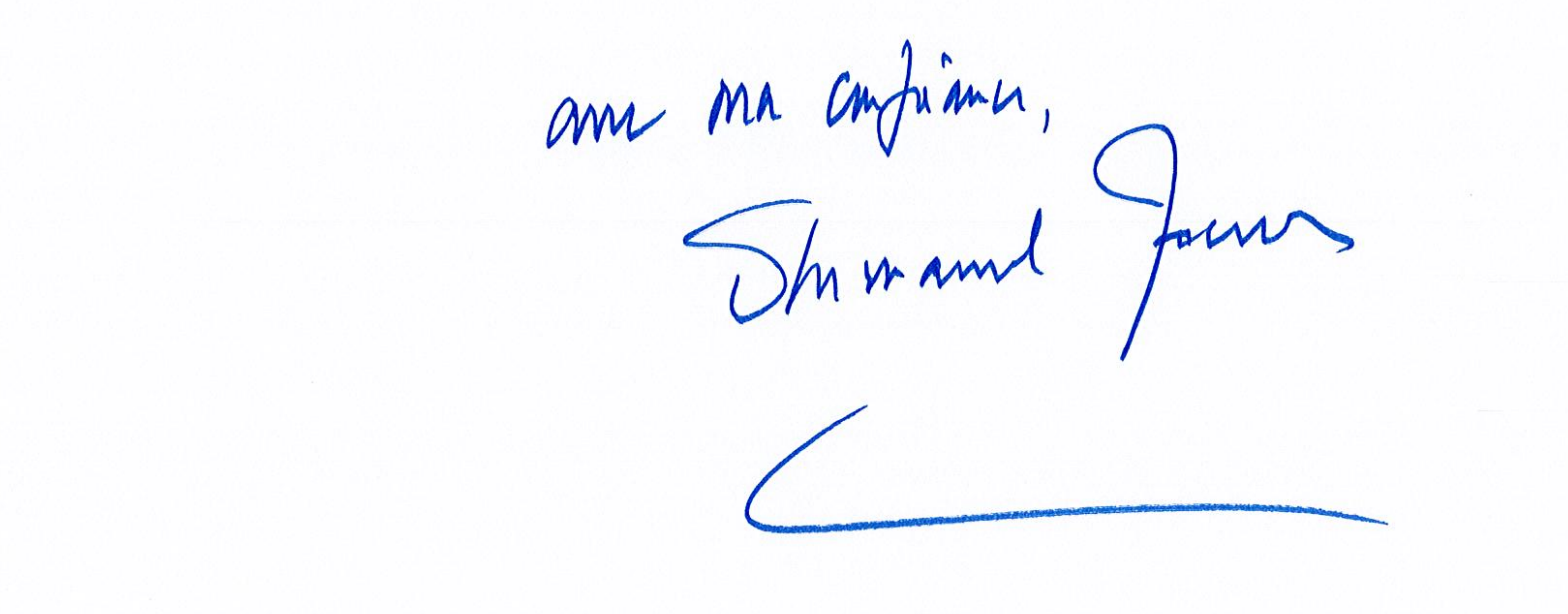 avec ma confiance,
Emmanuel